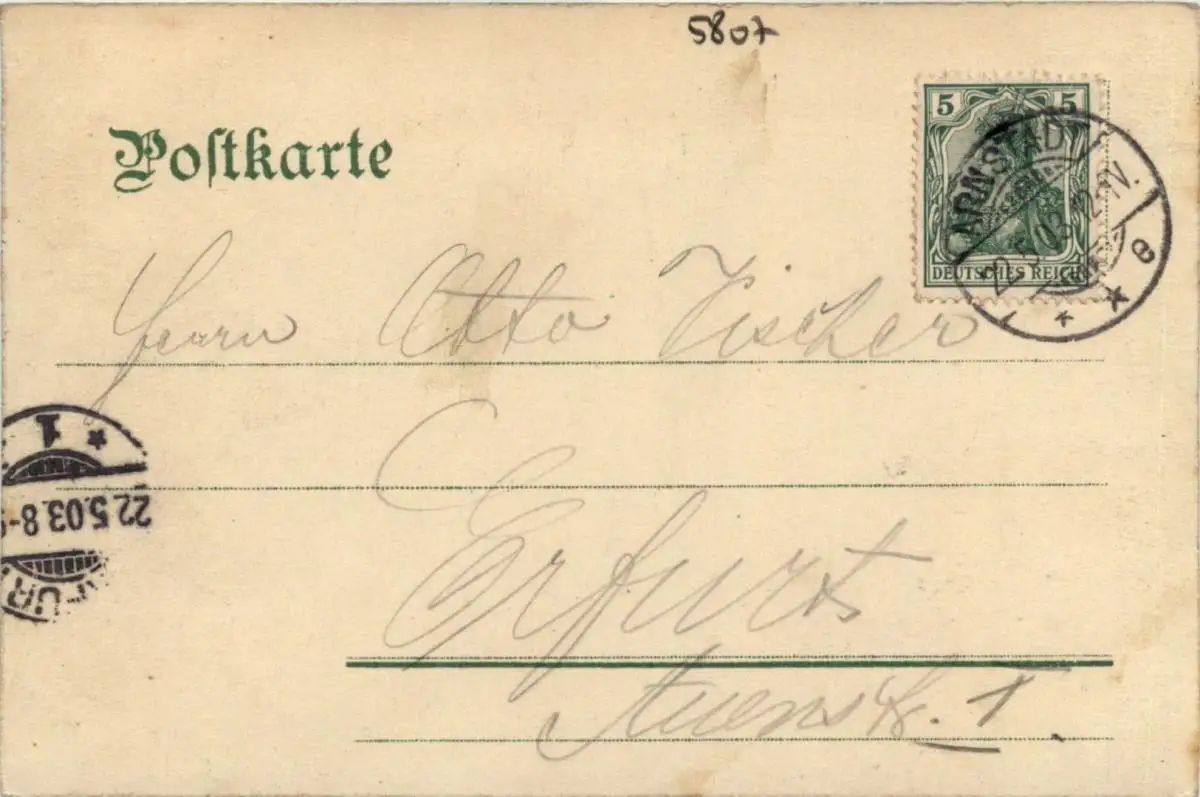 5807
Postkarte
5 5
DEUTSCHES REICH
ARNSTADT
22.5.03. 12-1V.
* * e
Herrn Otto Fischer
Erfurt
Auenstr. 1.
1 *
22.5.03. 8-9
ERFURT